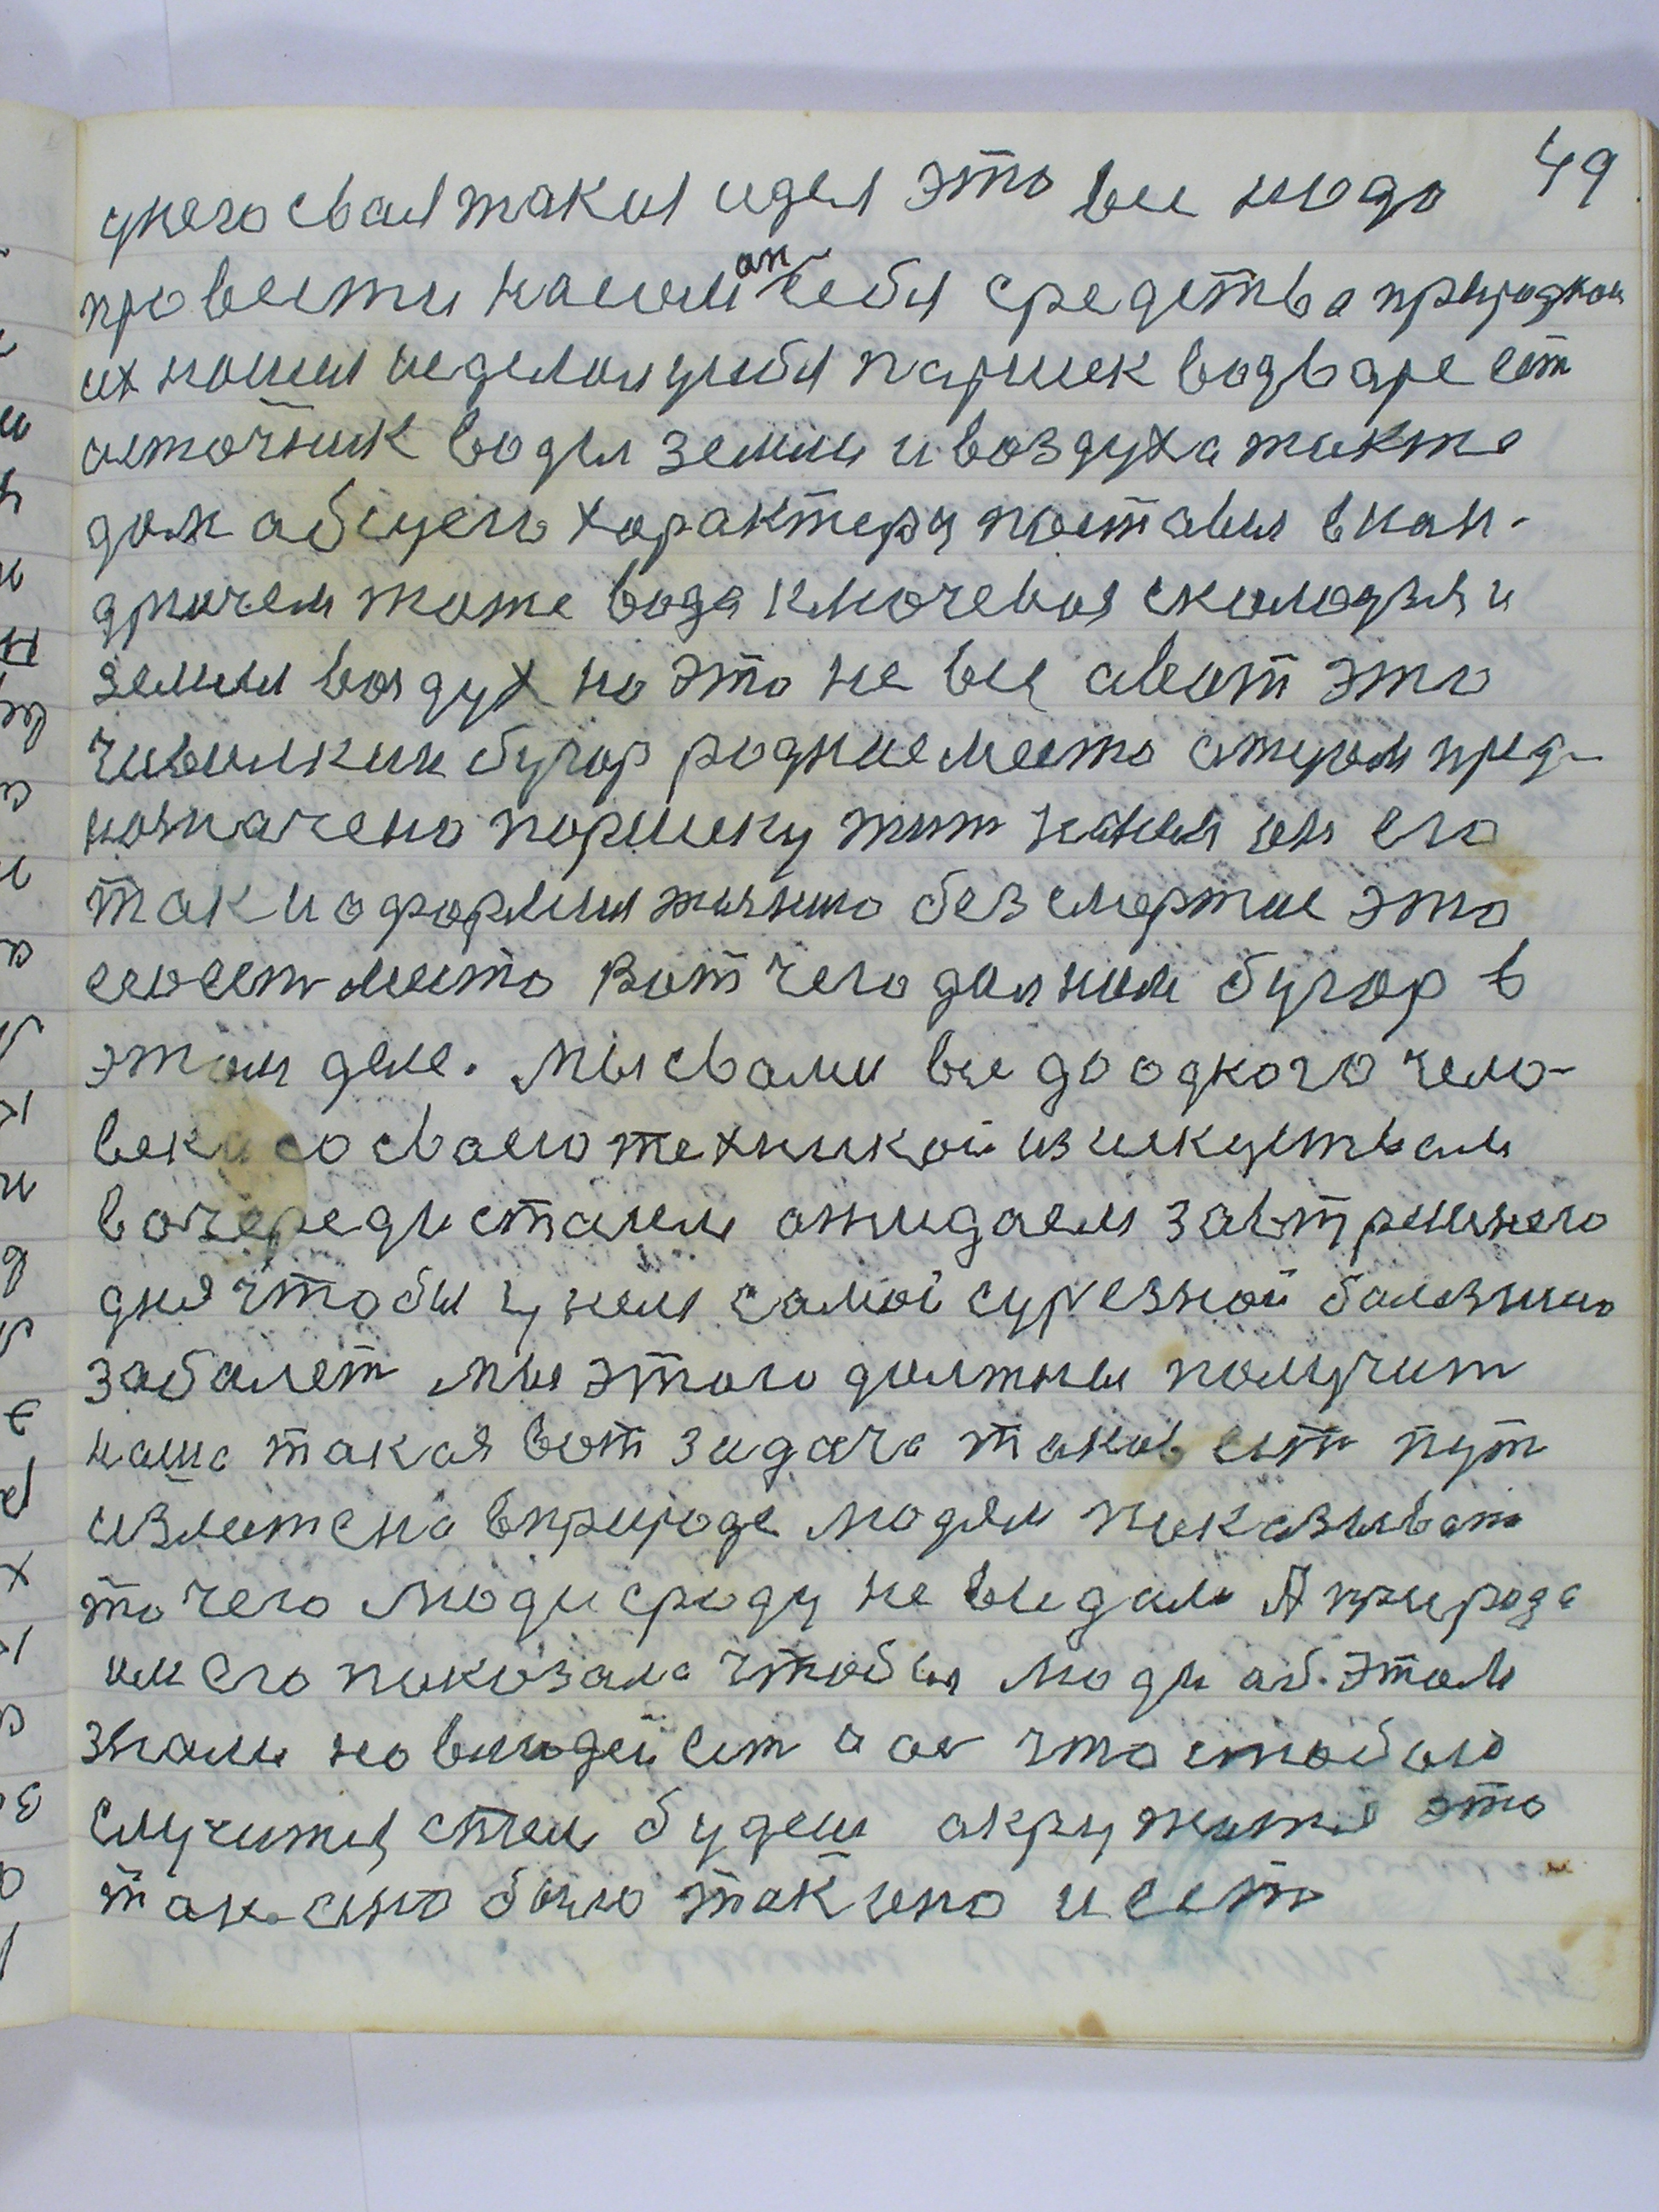 49
унего свая такия идея это все надо
провести насоми он себя средства природнаи
их нашел иделал у себя паршек водваре ест
источник воды земли и воздуха такжа
дом абщего характера поставил в кан-
дрычем тоже вода ключевая сколодзя и
земля воздух но это не все а вот это
чивилкин бугор родное место этим пред-
нозначено поршеку тит напал он его
так и оформил жизнию безсмертие это
его ест место Вот чего должен бугор в
этом деле. Мы свами все до одного чело-
века со сваею техникой изискуством
в очереди стаим ожидаем завтрешнего
дня чтобы у нем самой сурезной балезнию
заболет мы этого должны получит
наша такая вот задача таков ест пут
излажена вприроде людям показыват
то чего люди сроду не видали А природа
им его показала чтобы люди аб. этом
знали но влюдей ест аос что стобою
случится стем будеш акружится это
так ено было так ено и ест